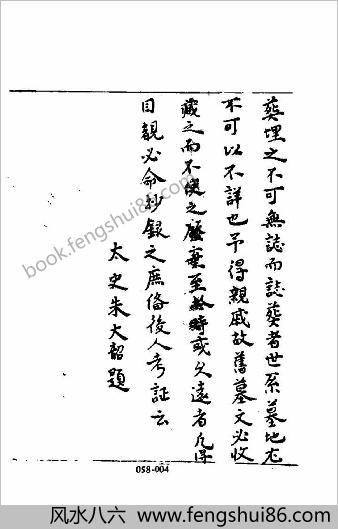 葬埋之不可無誌而誌葬者世系墓地尤
不可以不詳也予得親戚故舊墓文必收
藏之而不使之廢棄至於時或久遠者凡得
目親必命抄錄之庶俻後人考証云
太史朱大韶題
058-004
book.fengshui86.com
风水八六 www.fengshui86.com